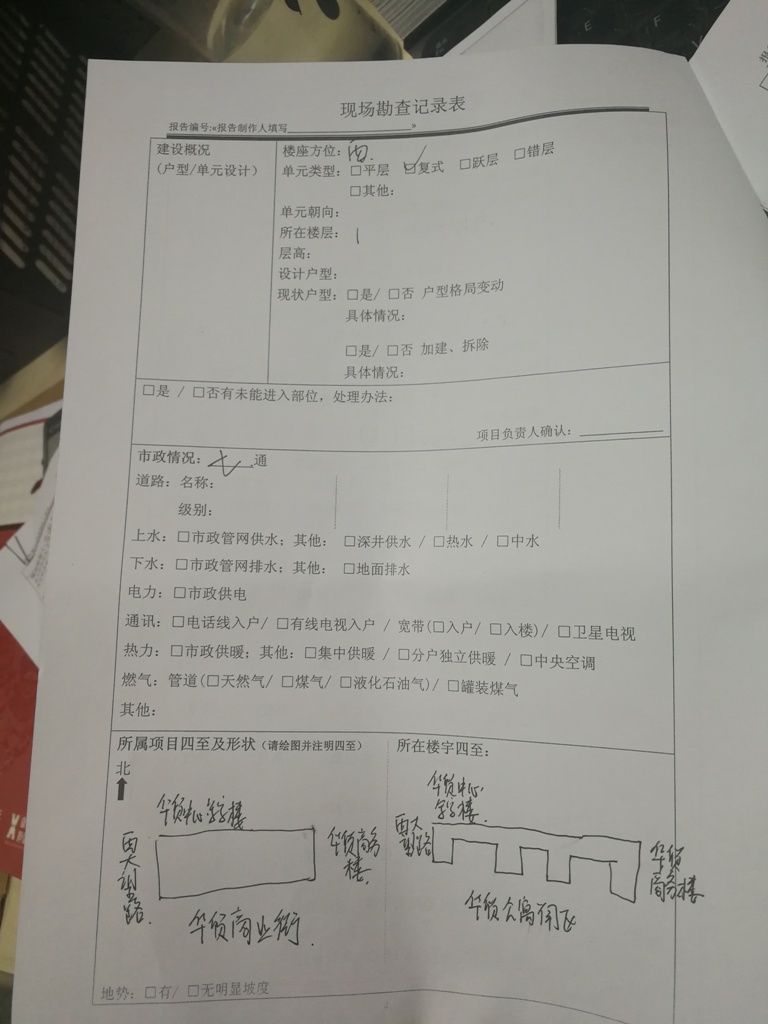 现场勘查记录表
报告编号:«报告制作人填写»
建设概况
(户型/单元设计)
楼座方位：西.
单元类型：□平层 ☑复式 □跃层 □错层
□其他：
单元朝向：
所在楼层：1
层高：
设计户型：
现状户型：□是/ □否 户型格局变动
具体情况：
□是/ □否 加建、拆除
具体情况：
□是 / □否有未能进入部位，处理办法：
项目负责人确认：
市政情况：七通
道路：名称：
级别：
上水：□市政管网供水；其他： □深井供水 / □热水 / □中水
下水：□市政管网排水；其他： □地面排水
电力：□市政供电
通讯：□电话线入户/ □有线电视入户 / 宽带(□入户/ □入楼)/ □卫星电视
热力：□市政供暖；其他：□集中供暖 / □分户独立供暖 / □中央空调
燃气：管道(□天然气/ □煤气/ □液化石油气)/ □罐装煤气
其他：
所属项目四至及形状（请绘图并注明四至）
北
华贸中心写字楼
西大望路
华贸商务楼
华贸商业街
所在楼宇四至：
华贸中心
写字楼
西大
望路
华贸
商务楼
华贸公寓
地势：□有/ □无明显坡度